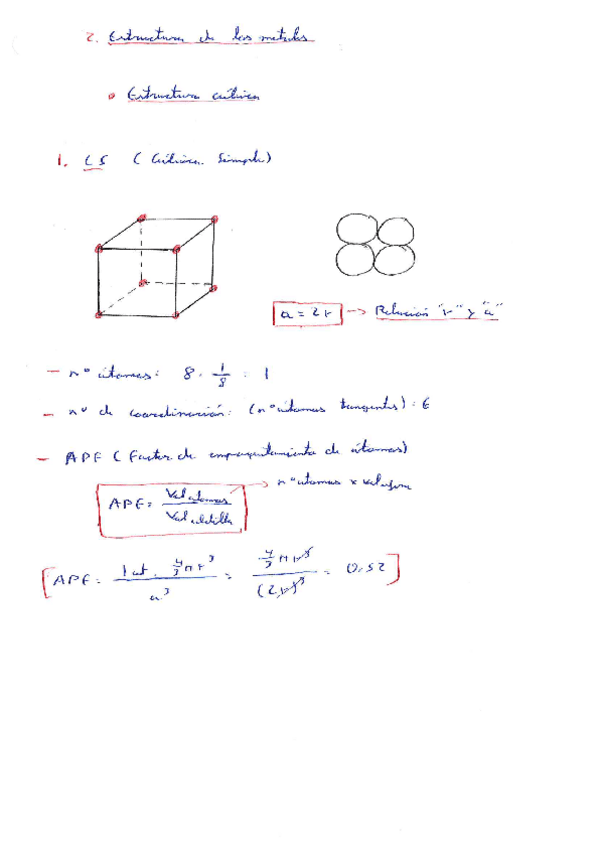 2. Estructura de los metales
Estructura cúbica
1. CS (Cúbica Simple)
a = 2r → Relación "r" y "a"
- nº átomos: 8 · 1/8 = 1
- nº de coordinación: (nº átomos tangentes) : 6
- APF (Factor de empaquetamiento de átomos)
APF = Vol átomos / Vol celdilla → nº átomos x Vol esfera
[APF = 1 at · 4/3 π r³ / a³ = 4/3 π r³ / (2r)³ = 0.52]